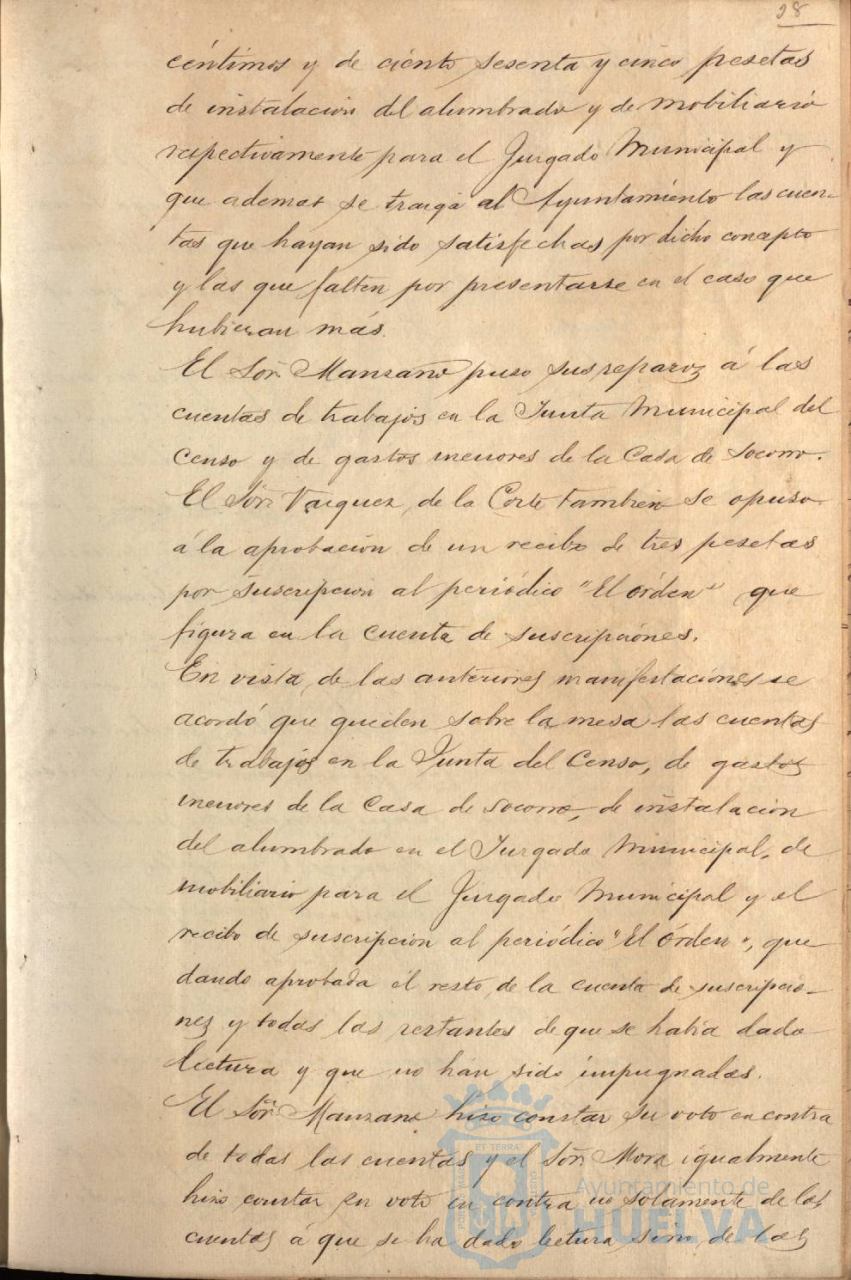 28
céntimos y de ciento sesenta y cinco pesetas
de instalación del alumbrado y de mobiliario
respectivamente para el Jurgado Municipal y
que ademas se traiga al Ayuntamiento las cuen-
tas que hayan sido satisfechas por dicho concepto
y las que falten por presentarse en el caso que
hubieran más.
El Sor. Manzano puso sus reparos á las
cuentas de trabajos en la Junta Municipal del
Censo y de gastos menores de la Casa de Socorro.
El Sor. Vazquez de la Corte tambien se opuso
á la aprobación de un recibo de tres pesetas
por suscripción al periódico "El órden" que
figura en la cuenta de suscripciónes.
En vista de las anteriores manifestaciónes se
acordó que queden sobre la mesa las cuentas
de trabajos en la Junta del Censo, de gastos
menores de la Casa de Socorro, de instalación
del alumbrado en el Jurgado Municipal, de
mobiliario para el Jurgado Municipal y el
recibo de suscripción al periódico "El Órden", que
dando aprobada el resto de la cuenta de suscripcio-
nes y todas las restantes de que se habia dado
lectura y que no han sido impugnadas.
El Sor. Manzano hizo constar su voto en contra
de todas las cuentas y el Sor. Mora igualmente
hizo constar en voto en contra no solamente de las
cuentas á que se ha dado lectura sino de las
ET TERRÆ
Ayuntamiento de
HUELVA